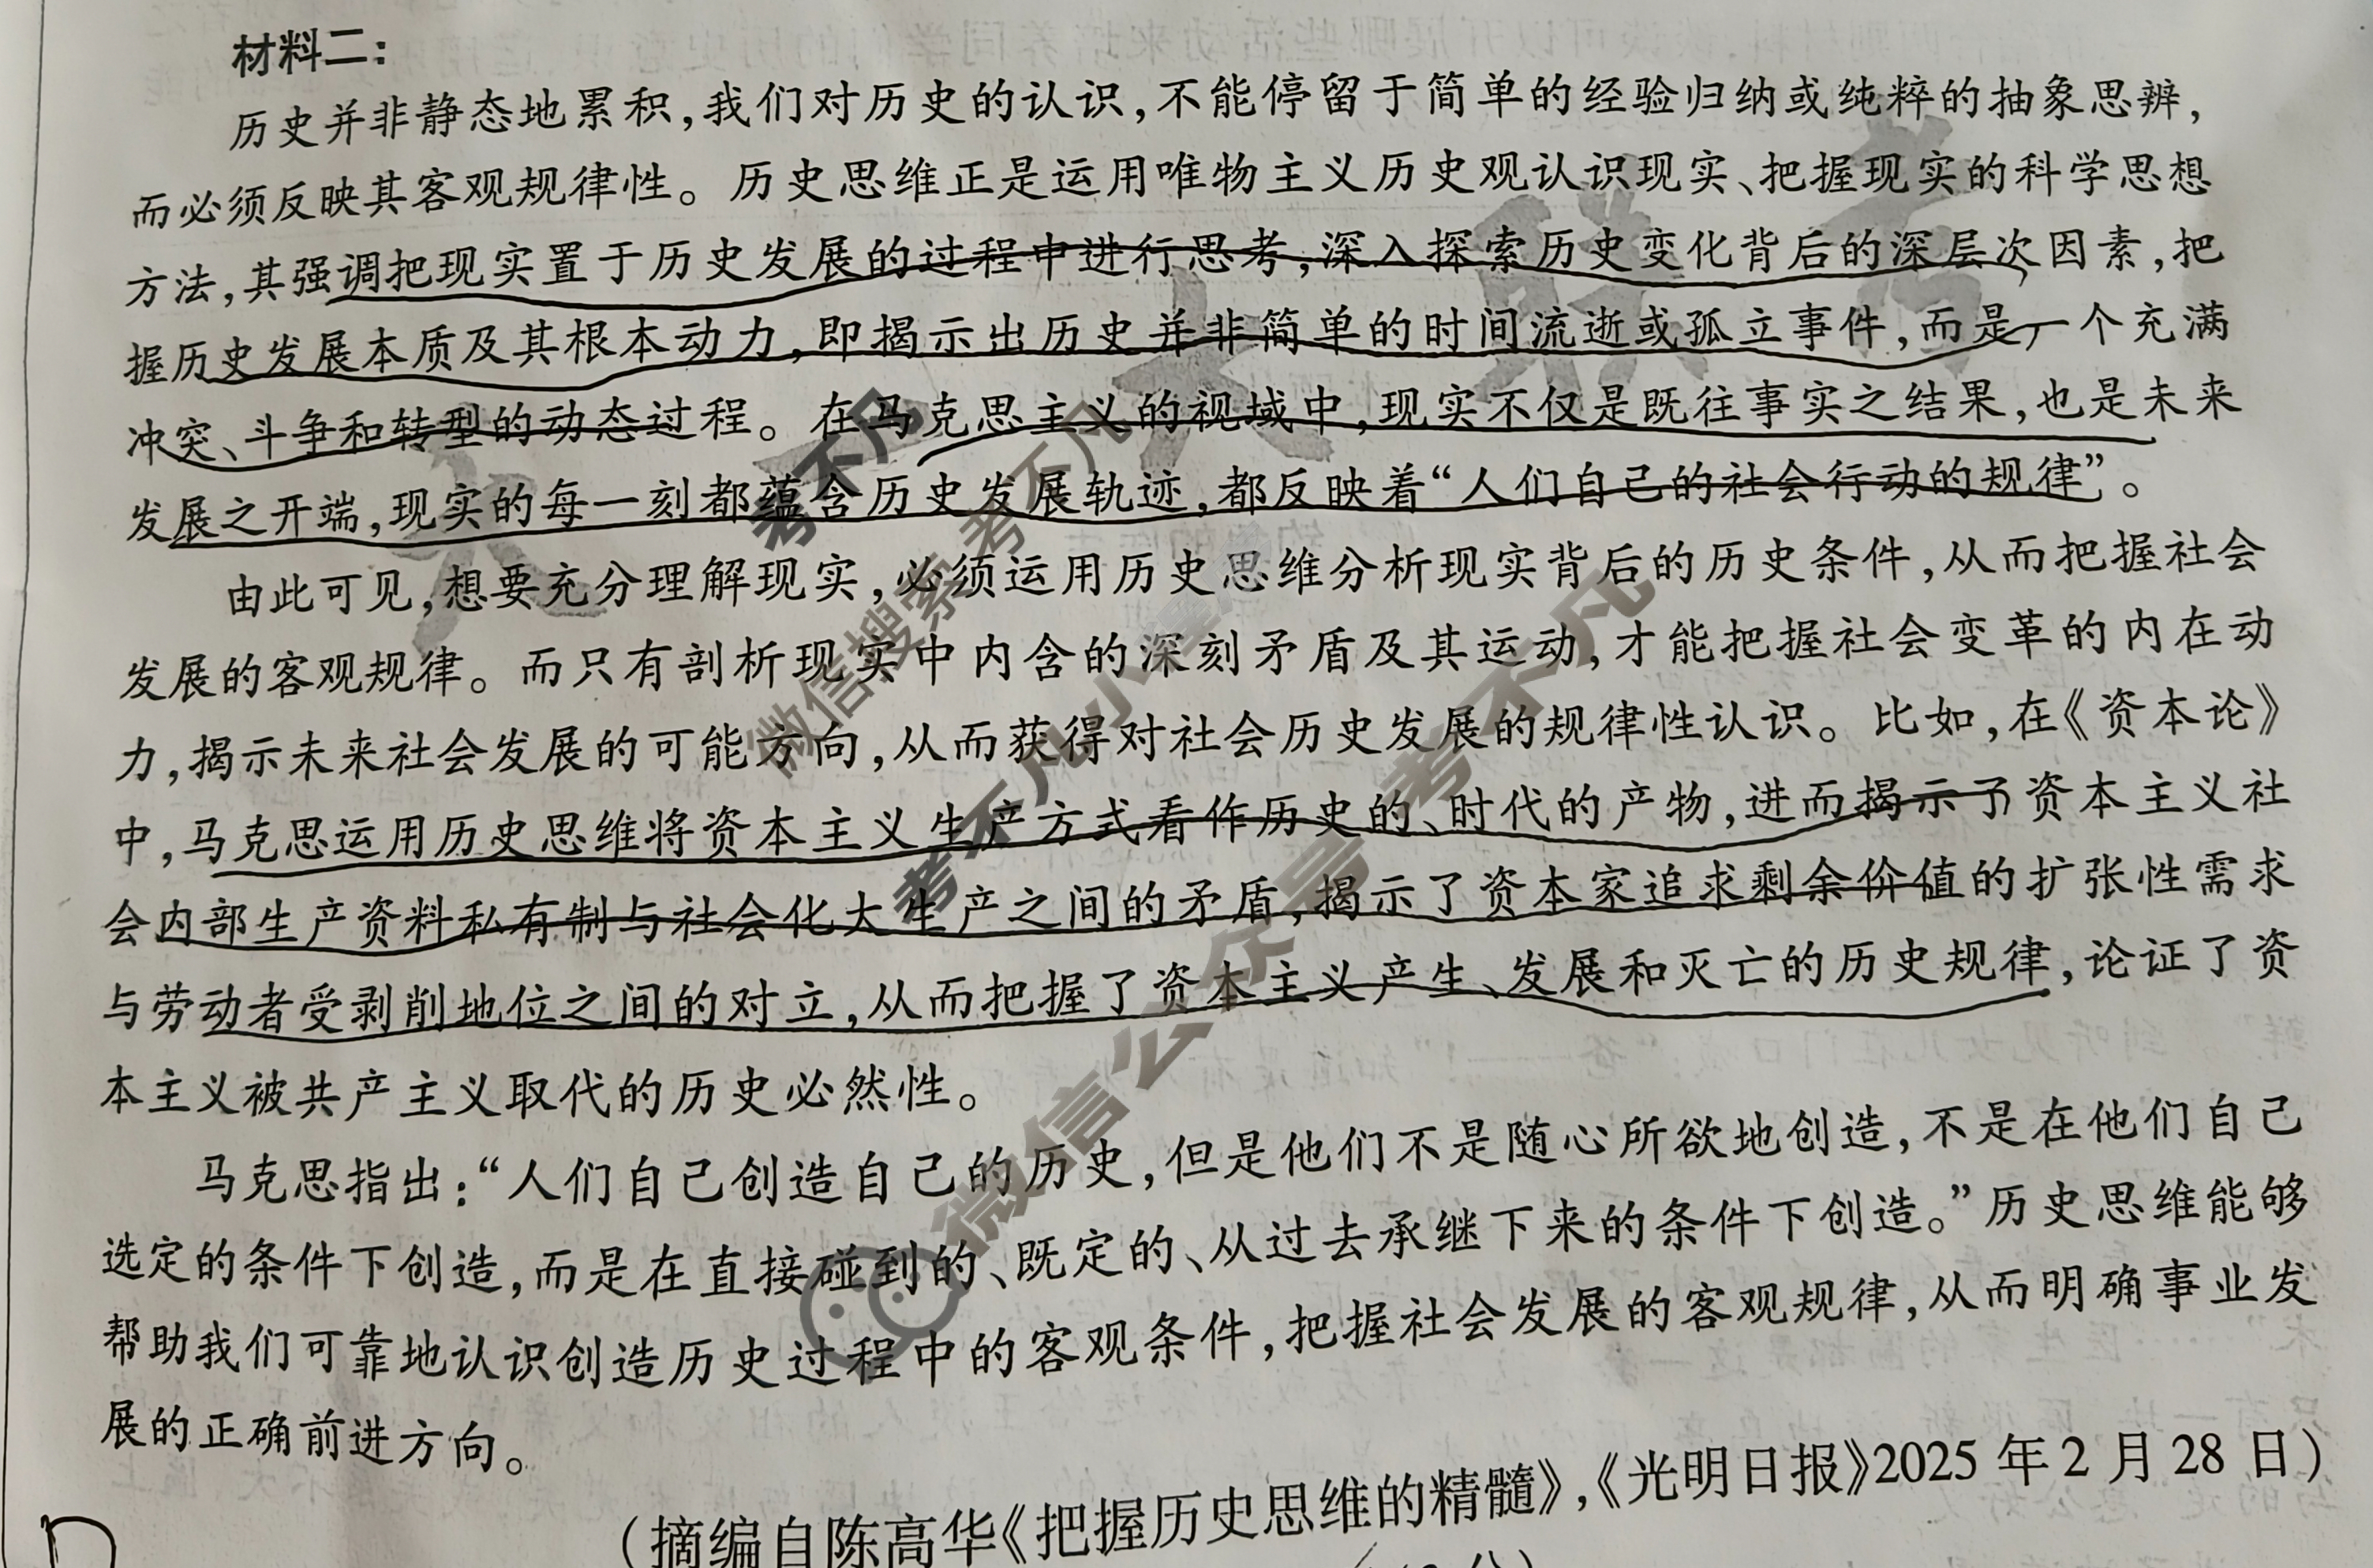 材料二:
历史并非静态地累积,我们对历史的认识,不能停留于简单的经验归纳或纯粹的抽象思辨,
而必须反映其客观规律性。历史思维正是运用唯物主义历史观认识现实、把握现实的科学思想
方法,其强调把现实置于历史发展的过程中进行思考,深入探索历史变化背后的深层次因素,把
握历史发展本质及其根本动力,即揭示出历史并非简单的时间流逝或孤立事件,而是一个充满
冲突、斗争和转型的动态过程。在马克思主义的视域中,现实不仅是既往事实之结果,也是未来
发展之开端,现实的每一刻都蕴含历史发展轨迹,都反映着“人们自己的社会行动的规律”。
由此可见,想要充分理解现实,必须运用历史思维分析现实背后的历史条件,从而把握社会
发展的客观规律。而只有剖析现实中内含的深刻矛盾及其运动,才能把握社会变革的内在动
力,揭示未来社会发展的可能方向,从而获得对社会历史发展的规律性认识。比如,在《资本论》
中,马克思运用历史思维将资本主义生产方式看作历史的、时代的产物,进而揭示了资本主义社
会内部生产资料私有制与社会化大生产之间的矛盾,揭示了资本家追求剩余价值的扩张性需求
与劳动者受剥削地位之间的对立,从而把握了资本主义产生、发展和灭亡的历史规律,论证了资
本主义被共产主义取代的历史必然性。
马克思指出:“人们自己创造自己的历史,但是他们不是随心所欲地创造,不是在他们自己
选定的条件下创造,而是在直接碰到的、既定的、从过去承继下来的条件下创造。”历史思维能够
帮助我们可靠地认识创造历史过程中的客观条件,把握社会发展的客观规律,从而明确事业发
展的正确前进方向。
(摘编自陈高华《把握历史思维的精髓》,《光明日报》2025年2月28日)
大联考
考不凡
微信搜索考不凡
考不凡小
微信公众号 考不凡